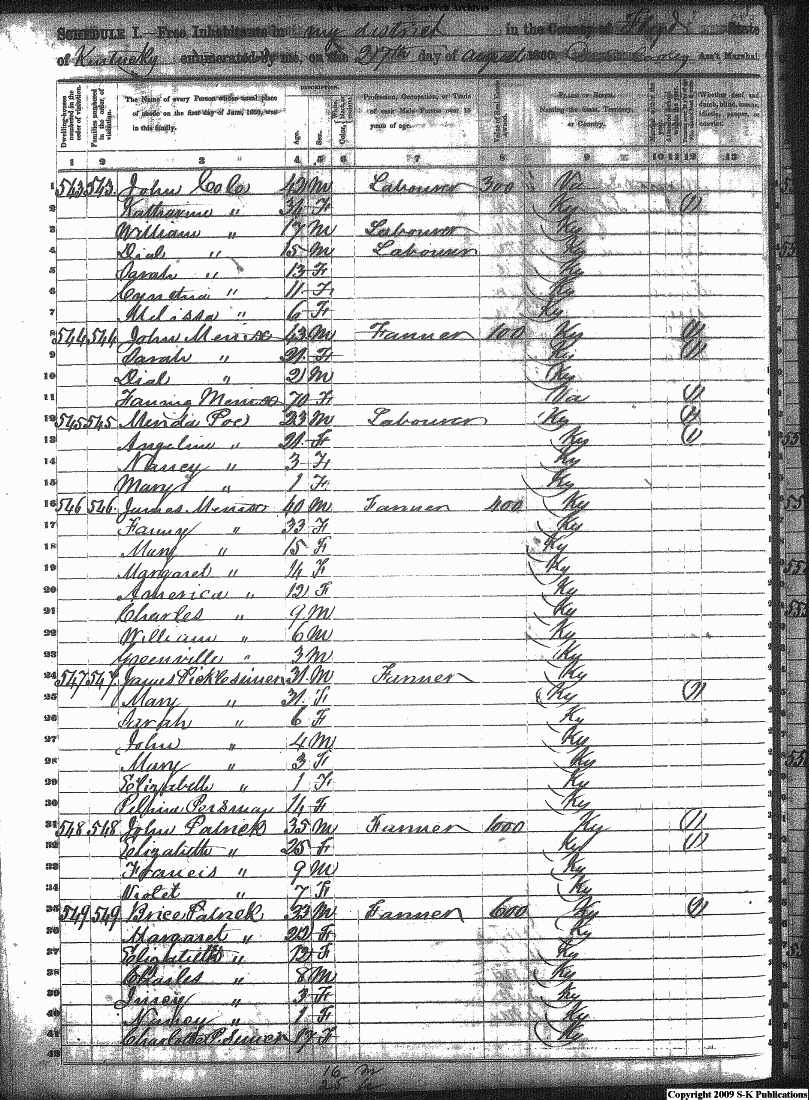 S-K Publications - USGenWeb Archives
SCHEDULE I.—Free Inhabitants in my district in the County of Floyd State
of Kentucky enumerated by me, on the 27th day of August 1850. Ass't Marshal.
Dwelling-houses numbered in the order of visitation.
Families numbered in the order of visitation.
The Name of every Person whose usual place of abode on the first day of June, 1850, was in this family.
Age.
Sex.
Profession, Occupation, or Trade of each Male Person over 15 years of age.
Value of Real Estate owned.
Place of Birth. Naming the State, Territory, or Country.
1 2 3 4 5 6 7 8 9 10 11 12 13
1 543 543 John 42 M Labourer 300 Va
2 Katharine " 34 F Ky 1
3 William " 17 M Labourer Ky
4 Dial " 15 M Labourer Ky
5 Sarah " 13 F Ky
6 Cynthia " 11 F Ky
7 Melissa " 6 F Ky
8 544 544 John 43 M Farmer 100 Ky 1
9 Sarah " 21 F Ky 1
10 Dial " 2 M Ky
11 70 F Va 1
12 545 545 Poe 23 M Labourer Ky 1
13 Angeline " 21 F Ky 1
14 Nancy " 3 F Ky
15 Mary " 1 F Ky
16 546 546 James 40 M Farmer 400 Ky
17 Fanny " 33 F Ky
18 Mary " 15 F Ky
19 Margaret " 14 F Ky
20 America " 12 F Ky
21 Charles " 9 M Ky
22 William " 6 M Ky
23 Greenville " 3 M Ky
24 547 547 James Picklesimer 31 M Farmer Ky
25 Mary " 31 F Ky 1
26 Sarah " 6 F Ky
27 John " 4 M Ky
28 Mary " 3 F Ky
29 Elizabeth " 1 F Ky
30 14 F Ky
31 548 548 John Patrick 35 M Farmer 1000 Ky 1
32 Elizabeth " 25 F Ky 1
33 Francis " 9 M Ky
34 Violet " 7 F Ky
35 549 549 Brice Patrick 33 M Farmer 600 Ky 1
36 Margaret " F Ky
37 Elizabeth " 12 F Ky
38 Charles " 8 M Ky
39 " 3 F Ky
40 Nancy " 1 F Ky
41 Charlotte P. Simer 17 F Ky
42
16 M
25
Copyright 2009 S-K Publications